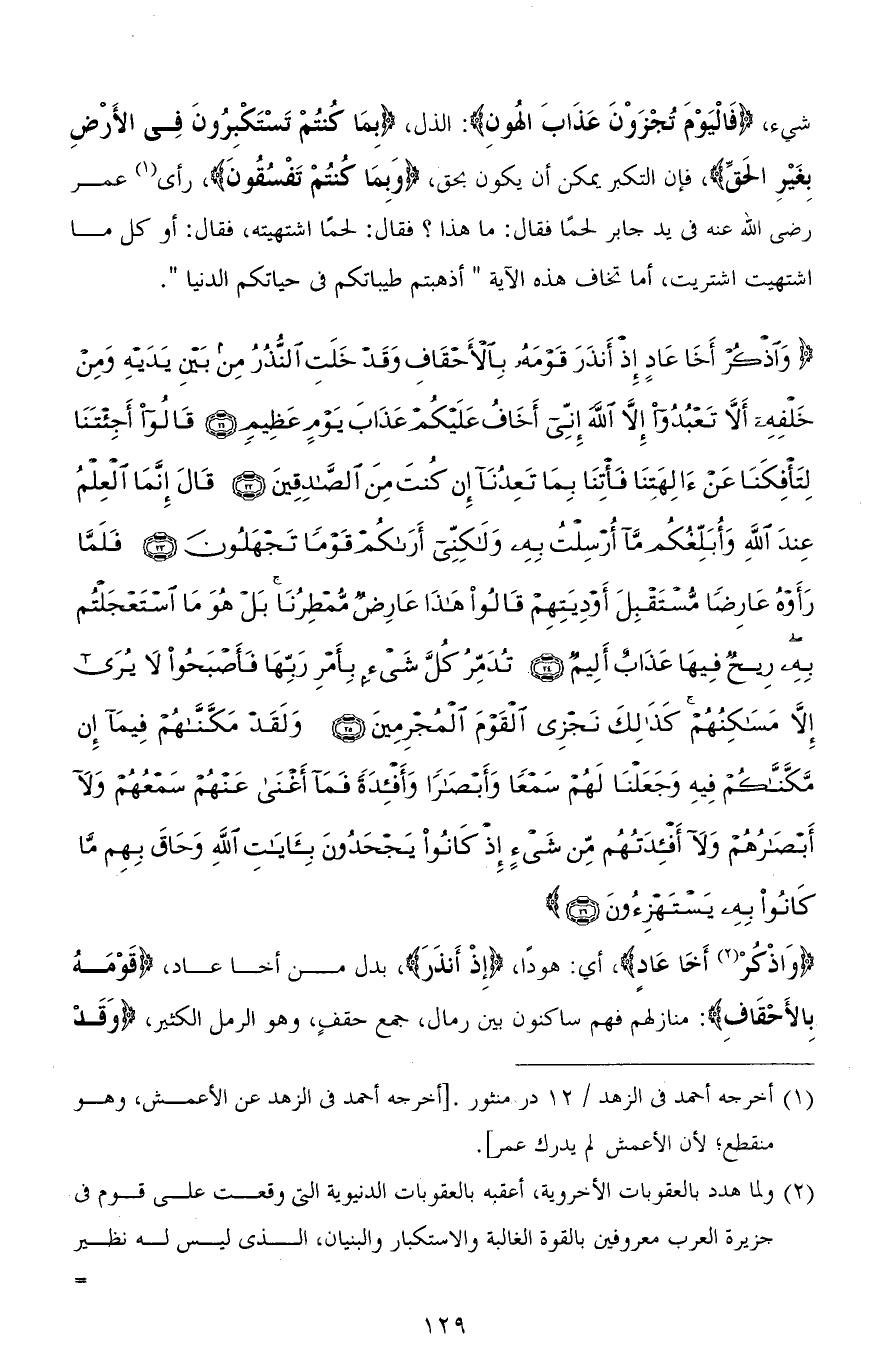 شيء، ﴿فَالْيَوْمَ تُجْزَوْنَ عَذَابَ الهُونِ﴾: الذل، ﴿بِمَا كُنتُمْ تَسْتَكْبِرُونَ فِي الأَرْضِ
بِغَيْرِ الحَقِّ﴾، فإن التكبر يمكن أن يكون بحق، ﴿وَبِمَا كُنتُمْ تَفْسُقُونَ﴾، رأى(١) عمر
رضى الله عنه فى يد جابر لحمًا فقال: ما هذا ؟ فقال: لحمًا اشتهيته، فقال: أو كل ما
اشتهيت اشتريت، أما تخاف هذه الآية " أذهبتم طيباتكم فى حياتكم الدنيا ".
﴿ وَٱذْكُرْ أَخَا عَادٍ إِذْ أَنذَرَ قَوْمَهُۥ بِٱلْأَحْقَافِ وَقَدْ خَلَتِ ٱلنُّذُرُ مِنۢ بَيْنِ يَدَيْهِ وَمِنْ
خَلْفِهِۦٓ أَلَّا تَعْبُدُوٓا۟ إِلَّا ٱللَّهَ إِنِّىٓ أَخَافُ عَلَيْكُمْ عَذَابَ يَوْمٍ عَظِيمٍ ﴿٢١﴾ قَالُوٓا۟ أَجِئْتَنَا
لِتَأْفِكَنَا عَنْ ءَالِهَتِنَا فَأْتِنَا بِمَا تَعِدُنَآ إِن كُنتَ مِنَ ٱلصَّٰدِقِينَ ﴿٢٢﴾ قَالَ إِنَّمَا ٱلْعِلْمُ
عِندَ ٱللَّهِ وَأُبَلِّغُكُم مَّآ أُرْسِلْتُ بِهِۦ وَلَٰكِنِّىٓ أَرَىٰكُمْ قَوْمًا تَجْهَلُونَ ﴿٢٣﴾ فَلَمَّا
رَأَوْهُ عَارِضًا مُّسْتَقْبِلَ أَوْدِيَتِهِمْ قَالُوا۟ هَٰذَا عَارِضٌ مُّمْطِرُنَا ۚ بَلْ هُوَ مَا ٱسْتَعْجَلْتُم
بِهِۦ ۖ رِيحٌ فِيهَا عَذَابٌ أَلِيمٌ ﴿٢٤﴾ تُدَمِّرُ كُلَّ شَىْءٍۭ بِأَمْرِ رَبِّهَا فَأَصْبَحُوا۟ لَا يُرَىٰٓ
إِلَّا مَسَٰكِنُهُمْ ۚ كَذَٰلِكَ نَجْزِى ٱلْقَوْمَ ٱلْمُجْرِمِينَ ﴿٢٥﴾ وَلَقَدْ مَكَّنَّٰهُمْ فِيمَآ إِن
مَّكَّنَّٰكُمْ فِيهِ وَجَعَلْنَا لَهُمْ سَمْعًا وَأَبْصَٰرًا وَأَفْـِٔدَةً فَمَآ أَغْنَىٰ عَنْهُمْ سَمْعُهُمْ وَلَآ
أَبْصَٰرُهُمْ وَلَآ أَفْـِٔدَتُهُم مِّن شَىْءٍ إِذْ كَانُوا۟ يَجْحَدُونَ بِـَٔايَٰتِ ٱللَّهِ وَحَاقَ بِهِم مَّا
كَانُوا۟ بِهِۦ يَسْتَهْزِءُونَ ﴿٢٦﴾ ﴾
﴿وَاذْكُرْ(٢) أَخَا عَادٍ﴾، أي: هودًا، ﴿إِذْ أَنذَرَ﴾، بدل من أخا عاد، ﴿قَوْمَهُ
بِالأَحْقَافِ﴾: منازلهم فهم ساكنون بين رمال، جمع حقفٍ، وهو الرمل الكثير، ﴿وَقَدْ
(١) أخرجه أحمد فى الزهد / ١٢ در منثور .[أخرجه أحمد فى الزهد عن الأعمش، وهو
منقطع؛ لأن الأعمش لم يدرك عمر].
(٢) ولما هدد بالعقوبات الأخروية، أعقبه بالعقوبات الدنيوية التى وقعت على قوم فى
جزيرة العرب معروفين بالقوة الغالبة والاستكبار والبنيان، الذى ليس له نظير
=
١٢٩